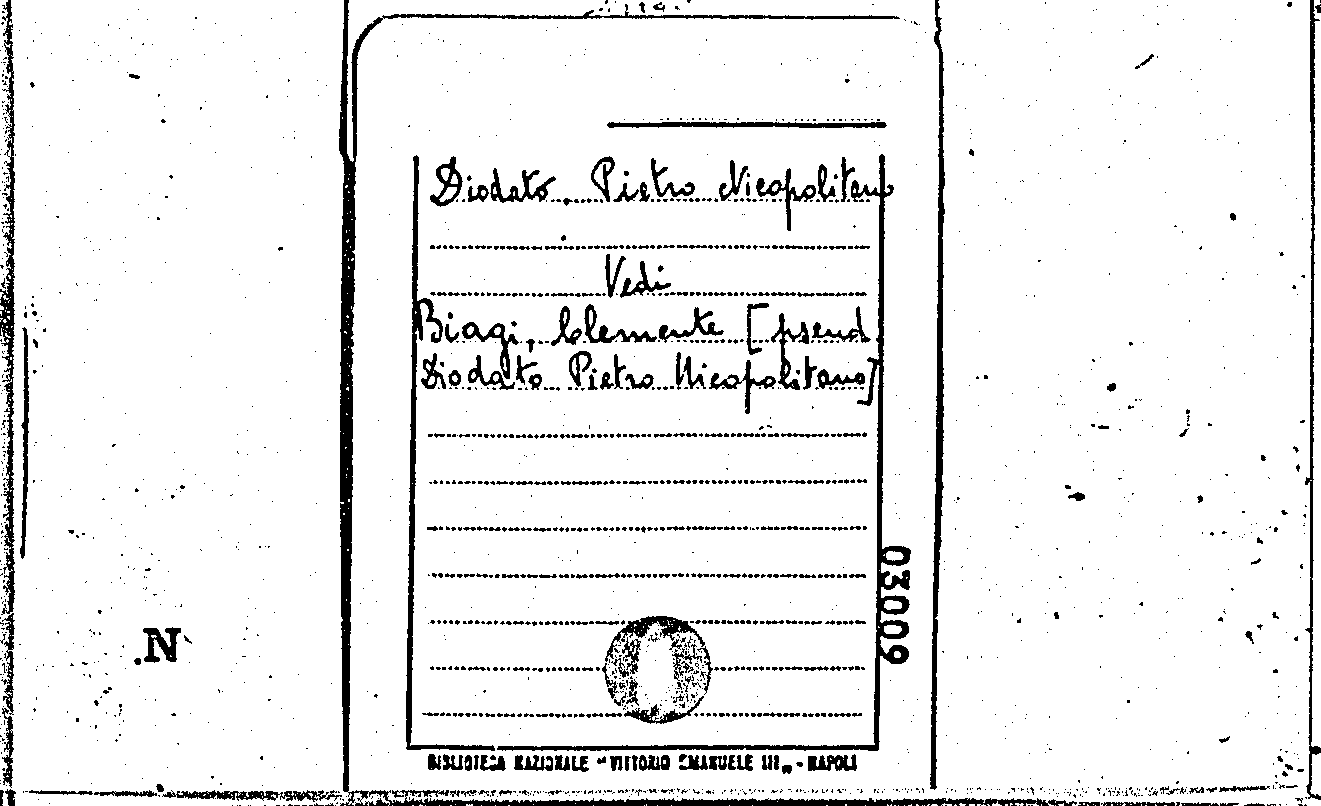 Diodato, Pietro Nicopolitano
Vedi
Biagi, Clemente [pseud.
Diodato Pietro Nicopolitano]
03009
.N
BIBLIOTECA NAZIONALE "VITTORIO EMANUELE III„ - NAPOLI